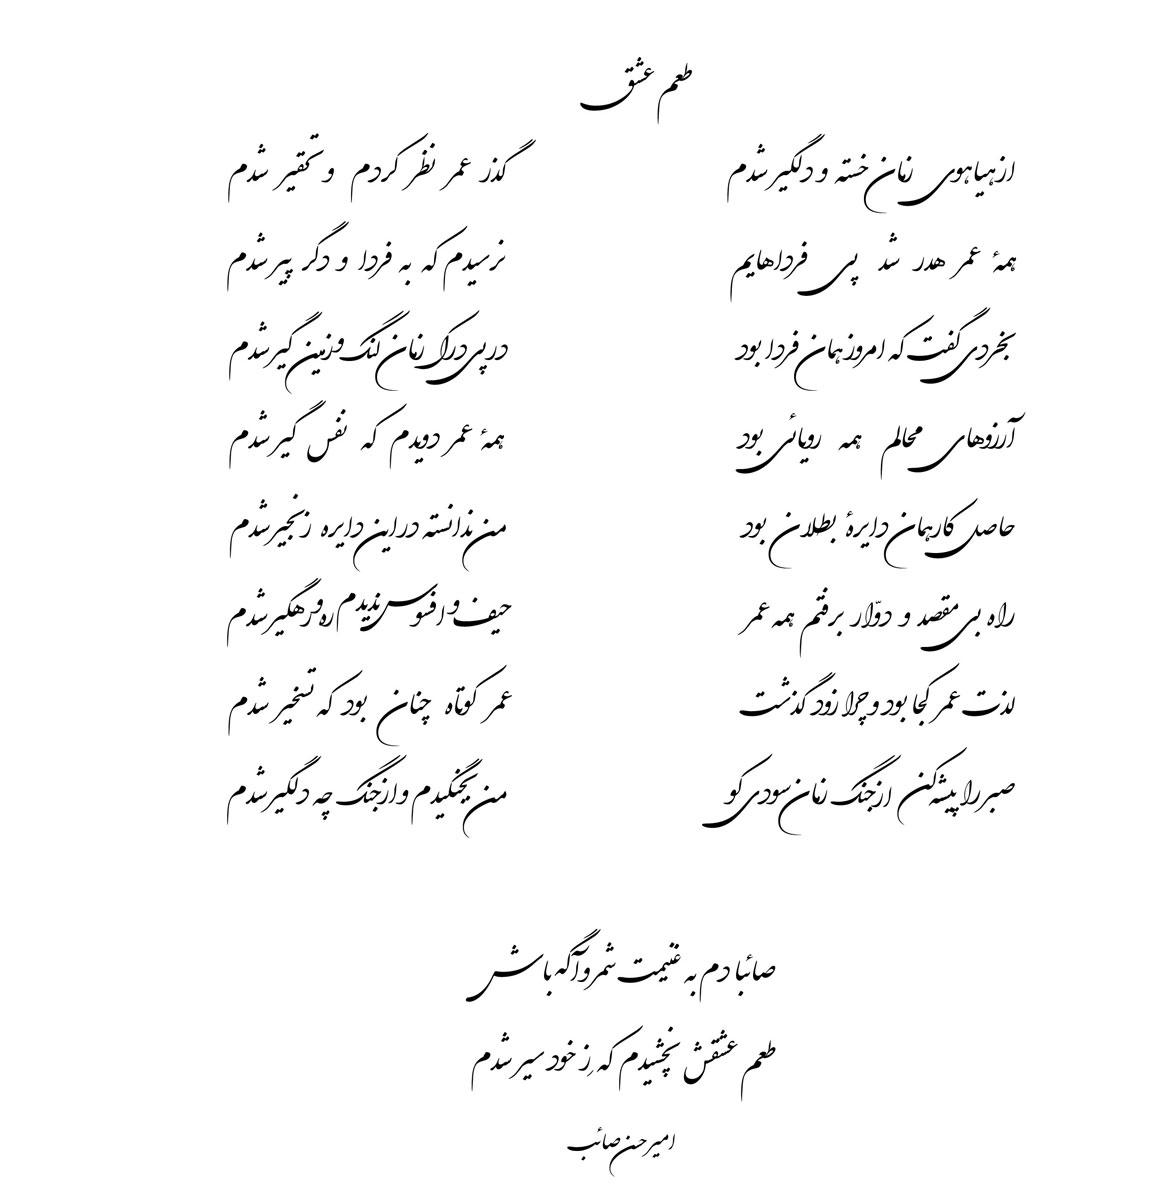 طعم عشق
از هیاهوی زمان خسته و دلگیر شدم گذر عمر نظر کردم و تحقیر شدم
همهٔ عمر هدر شد پی فرداهایم نرسیدم که به فردا و دگر پیر شدم
بخردی گفت که امروز همان فردا بود در پی درک زمان لنگ و زمین گیر شدم
آرزوهای محالم همه رویائی بود همهٔ عمر دویدم که نفس گیر شدم
حاصل کار همان دایرهٔ بطلان بود من ندانسته در این دایره زنجیر شدم
راه بی مقصد و دوّار برفتم همه عمر حیف و افسوس ندیدم ره و رهگیر شدم
لذت عمر کجا بود و چرا زود گذشت عمر کوتاه چنان بود که تسخیر شدم
صبر را پیشه کن از جنگ زمان سودی کو من بجنگیدم و از جنگ چه دلگیر شدم
صائبا دم به غنیمت شمر و آگه باش
طعم عشقش نچشیدم که ز خود سیر شدم
امیرحسن صائب